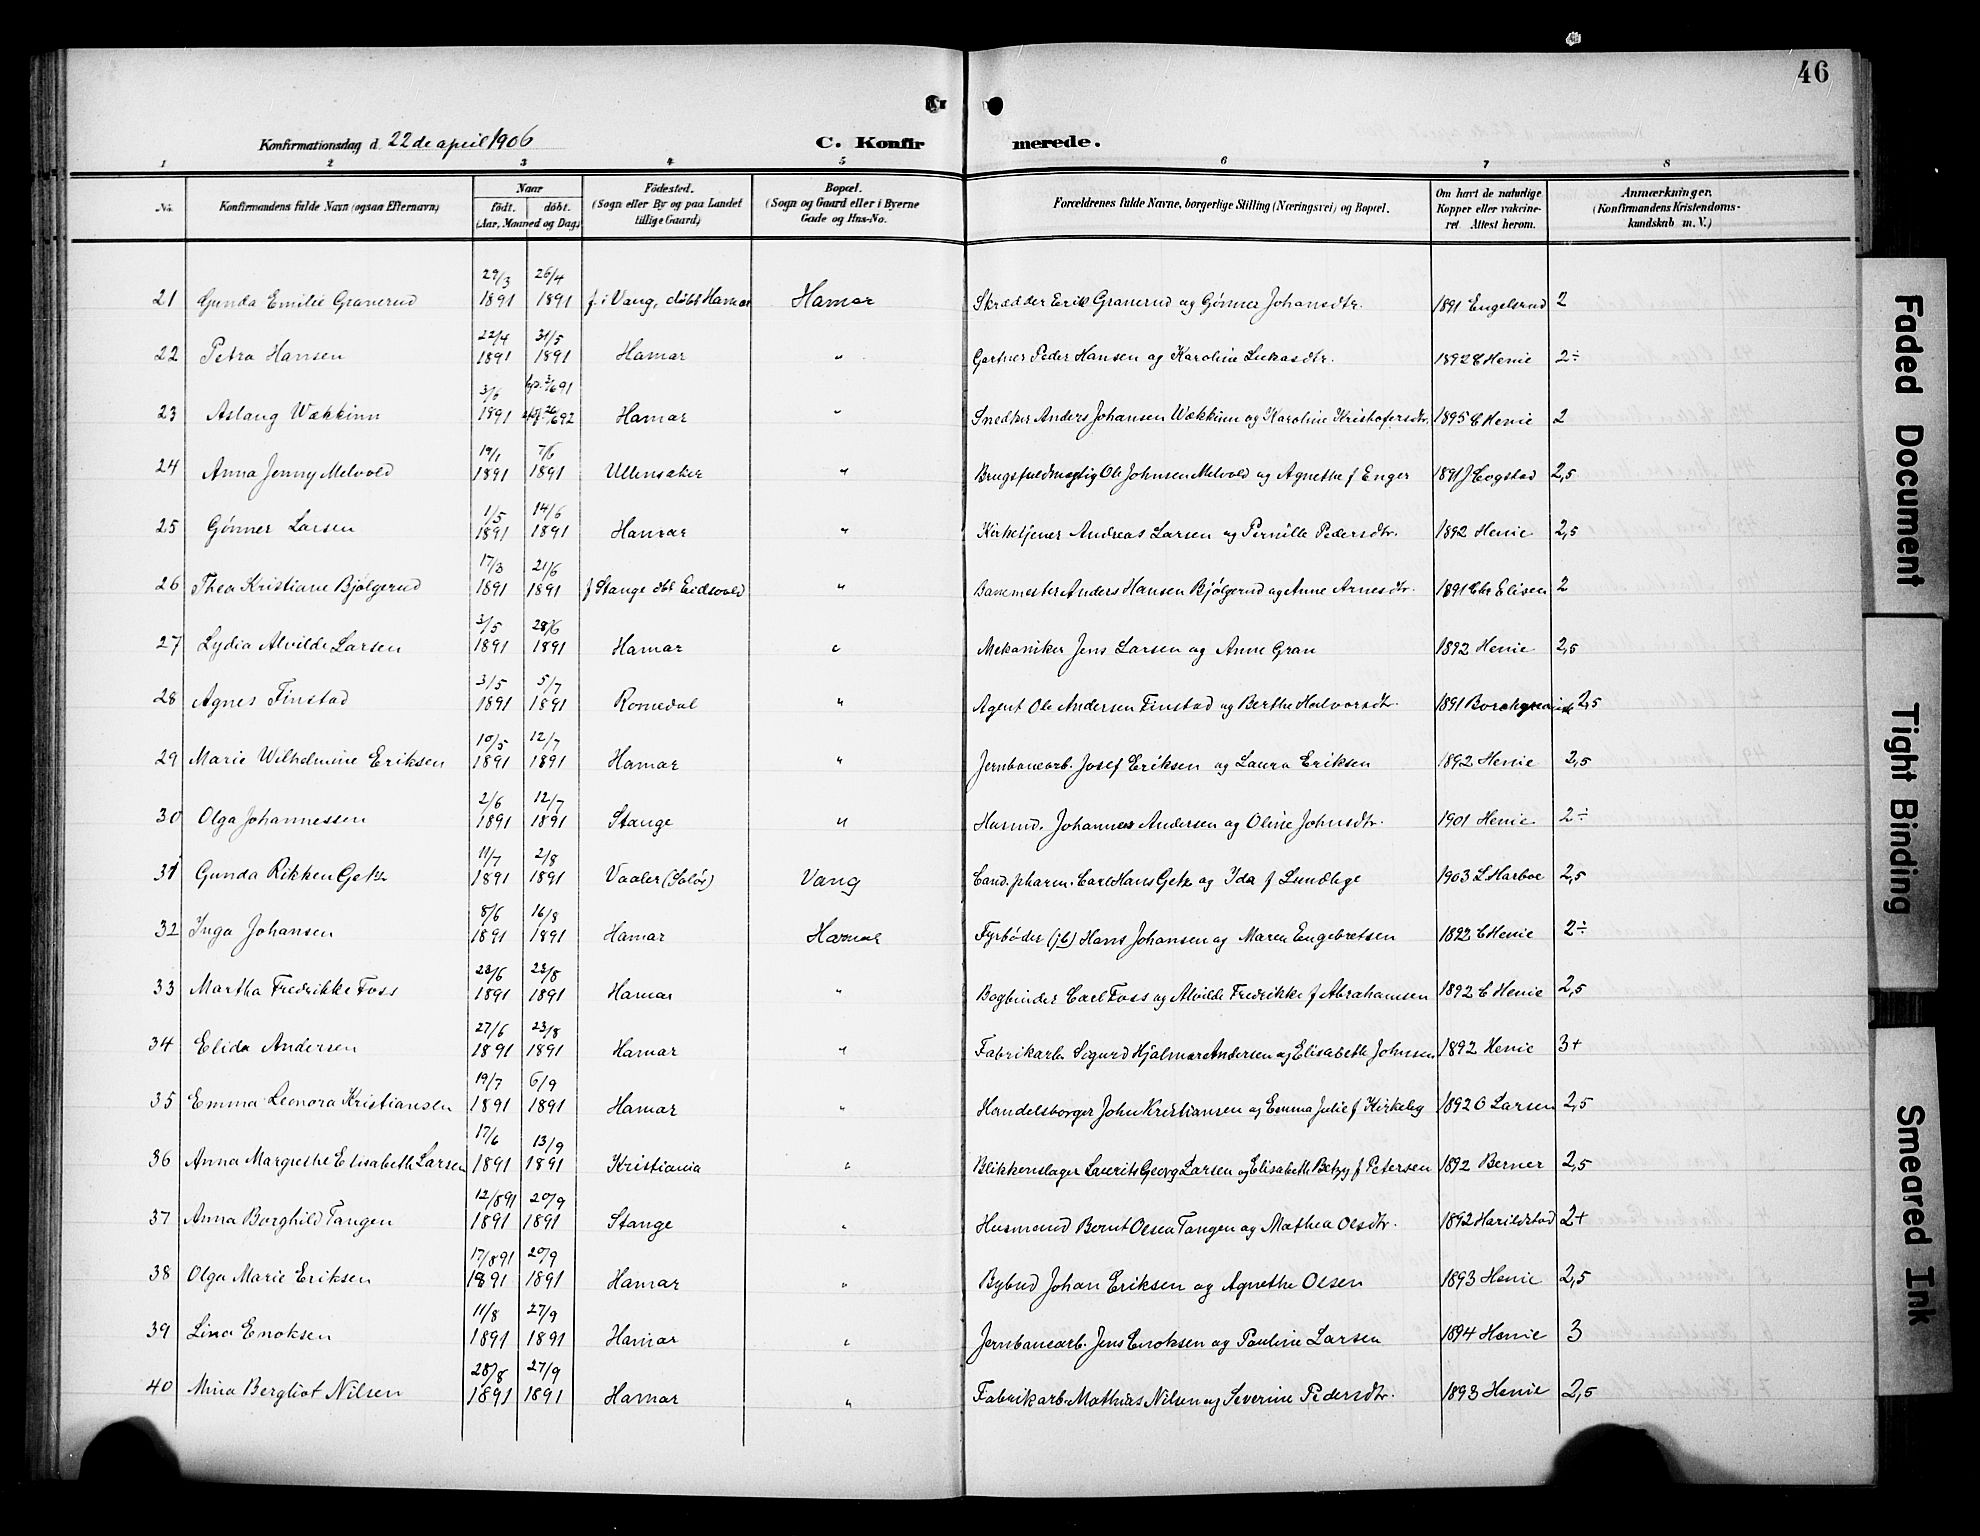 46
Konfirmationsdag d. 22 de april 1906
C. Konfir merede.
1 2 3 4 5 6 7 8
No. Konfirmandens fulde Navn (ogsaa Efternavn) Naar født. døbt. (Aar, Maaned og Dag) Fødested. (Sogn eller By og paa Landet tillige Gaard) Bopæl. (Sogn og Gaard eller i Byerne Gade og Hus-No. Forældrenes fulde Navne, borgerlige Stilling (Næringsvei) og Bopæl. Om havt de naturlige Kopper eller vakcineret Attest herom. Anmærkninger. (Konfirmandens Kristendomskundskab m. V.)
21 Gunda Emilie Granerud 29/3 1891 26/4 1891 f i Vang, døbt Hamar Hamar Skrædder Erik Granerud og Gønner Johansdtr. 1891 Engelsrud 2
22 Petra Hansen 22/4 1891 31/5 1891 Hamar " Gartner Peder Hansen og Karoline Lukasdtr. 1892 C Henie 2÷
23 Aslaug Wækkinn 3/6 1891 Hamar " Snedker Anders Johansen Wækkinn og Karoline Kristofersdtr. 1895 C Henie 2
24 Anna Jenny Melvold 19/1 1891 7/6 1891 Ullensaker " Brugsfuldmægtig Ole Johnsen Melvold og Agnethe f Enger 1891 J Cogstad 2,5
25 Gønner Larsen 1/5 1891 14/6 1891 Hamar " Kirketjener Andreas Larsen og Pernille Pedersdtr. 1892 Henie 2,5
26 Thea Kristiane Bjølgerud 17/3 1891 21/6 1891 f Stange dbt Eidsvold " Banemester Anders Hansen Bjølgerud og Anne Arnesdtr. 1891 Chr Elisen 2
27 Lydia Alvilde Larsen 3/5 1891 28/6 1891 Hamar " Mekaniker Jens Larsen og Anne Gran 1892 Henie 2,5
28 Agnes Finstad 3/5 1891 5/7 1891 Romedal " Agent Ole Andersen Finstad og Berthe Halvorsdtr. 1891 Borchgrevink 2,5
29 Marie Wilhelmine Eriksen 10/5 1891 12/7 1891 Hamar " Jernbanearb. Josef Eriksen og Laura Eriksen 1892 Henie 2,5
30 Olga Johannessen 2/6 1891 12/7 1891 Stange " Husmd. Johannes Andersen og Oline Johnsdtr. 1901 Henie 2÷
31 Gunda Rikken Getz 11/7 1891 2/8 1891 Vaaler (Solør) Vang Cand. pharm. Carl Hans Getz og Ida f Lundlye 1903 L Harboe 2,5
32 Inga Johansen 8/6 1891 16/8 1891 Hamar Hamar Fyrbøder (jb) Hans Johansen og Maren Engebretsen 1892 C Henie 2÷
33 Martha Fredrikke Foss 23/6 1891 23/8 1891 Hamar " Bogbinder Carl Foss og Alvilde Fredrikke f Abrahamsen 1892 C Henie 2,5
34 Elida Andersen 27/6 1891 23/8 1891 Hamar " Fabrikarb. Sigurd Hjalmar Andersen og Elisabeth Johnsen 1892 Henie 3+
35 Emma Leonora Kristiansen 19/7 1891 6/9 1891 Hamar " Handelsborger John Kristiansen og Emma Julie f Kirkeby 1892 O Larsen 2,5
36 Anna Margrethe Elisabeth Larsen 17/6 1891 13/9 1891 Kristiania " Blikkenslager Laurits Georg Larsen og Elisabeth Betzy f Petersen 1892 Berner 2,5
37 Anna Borghild Tangen 12/8 91 1891 20/9 1891 Stange " Husmand Bernt Olsen Tangen og Mathea Olsdtr. 1892 Harildstad 2+
38 Olga Marie Eriksen 17/8 91 1891 20/9 1891 Hamar " Bybud Johan Eriksen og Agnethe Olsen 1893 Henie 2,5
39 Lina Enoksen 11/8 1891 27/9 1891 Hamar " Jernbanearb. Jens Enoksen og Pauline Larsen 1894 Henie 3
40 Mina Bergliot Nilsen 28/8 1891 27/9 1891 Hamar " Fabrikarb. Mathias Nilsen og Severine Pedersdtr. 1893 Henie 2,5
Faded Document
Tight Binding
Smeared Ink